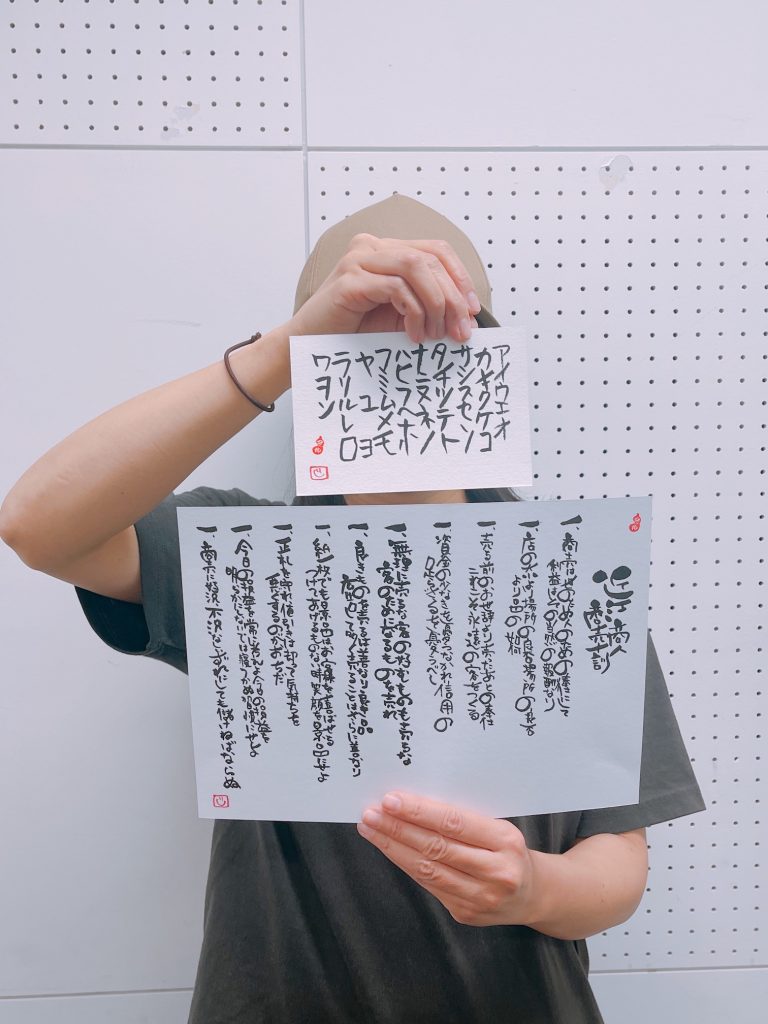 アイウエオ
カキクケコ
サシスセソ
タチツテト
ナニヌネノ
ハヒフヘホ
マミムメモ
ヤユヨ
ラリルレロ
ワヲン
近江商人
商売十訓
一、商売は世のため人のための奉仕にして
利益はその当然の報酬なり
一、店の大小より場所の良否場所の良否
より品の如何
一、売る前のお世辞より売ったあとの奉仕
これこそ永遠の客をつくる
一、資金の少なきを憂うなかれ信用の
足らざるを憂うべし
一、無理に売るな客の好むものも売るな
客のためになるものを売れ
一、良きものを売るは善なり良き品
広告して多く売ることはさらに善なり
一、紙一枚でも景品はお客様を喜ばせる
つけてあげるものない時笑顔を景品にせよ
一、正札を守れ値引きは却って気持ちを
悪くするのがおちだ
一、今日の損益を常に考えよ今日の損益を
明らかにしないでは寝につかぬ習慣にせよ
一、商売に好況不況なしいずれにしても儲けねばならぬ